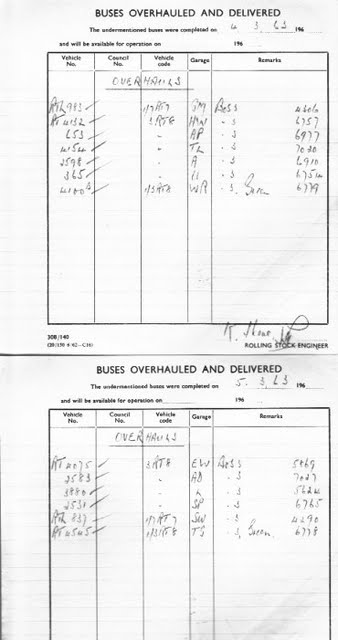 BUSES OVERHAULED AND DELIVERED
The undermentioned buses were completed on 4. 3. 63 196
and will be available for operation on 196
Vehicle No. Council No. Vehicle code Garage Remarks
OVERHAULS
1/7 RT7 Bo S3 4606
RT 4132 3RT8 HW " S 6757
653 " AP " S 6977
4154 " TL " S 7020
2598 " A " S 6910
365 " " S 6754
4100 1/3 RT8 WR " S, Green 6779
308/140
ROLLING STOCK ENGINEER
BUSES OVERHAULED AND DELIVERED
The undermentioned buses were completed on 5. 3. 63 196
and will be available for operation on 196
Vehicle No. Council No. Vehicle code Garage Remarks
OVERHAULS
RT 4075 3RT8 EW Bo S3 5069
2583 " AD " S 7027
3880 " L " S 5624
2531 " SP " S 6765
837 1/7 RT7 SW " S 4290
RT 4545 1/3 RT8 TS " S, Green 6778